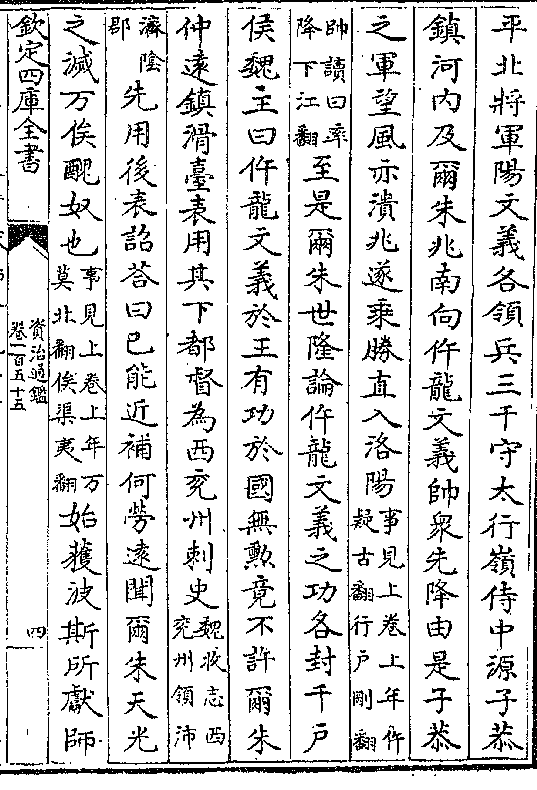 平北將軍陽文義各領兵三千守太行嶺侍中源子恭
鎮河内及爾朱兆南向仵龍文義帥衆先降由是子恭
之軍望風亦潰兆遂乘勝直入洛陽事見上卷上年仵疑古翻行戸剛翻
帥讀曰率降下江翻至是爾朱世隆論仵龍文義之功各封千戸
侯魏主曰仵龍文義於王有功於國無勲竟不許爾朱
仲遠鎮滑臺表用其下都督為西兖州刺史魏收志西兖州領沛
濟隂郡先用後表詔荅曰已能近補何勞遠聞爾朱天光
之滅万俟醜奴也事見上卷上年万莫北翻俟渠夷翻始獲波斯所獻師
欽定四庫全書
資治通鑑
卷一百五十五
四